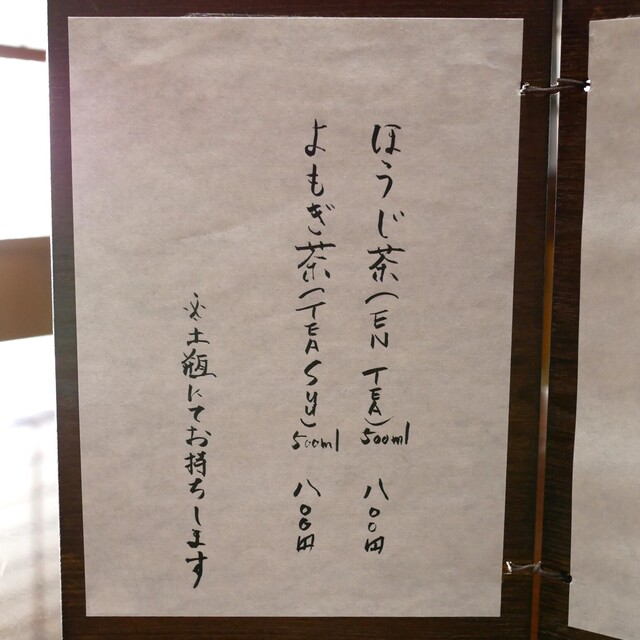 ほうじ茶(EN TEA)500ml 八〇〇円
よもぎ茶(TEA SU)500ml 八〇〇円
※土瓶にてお持ちします